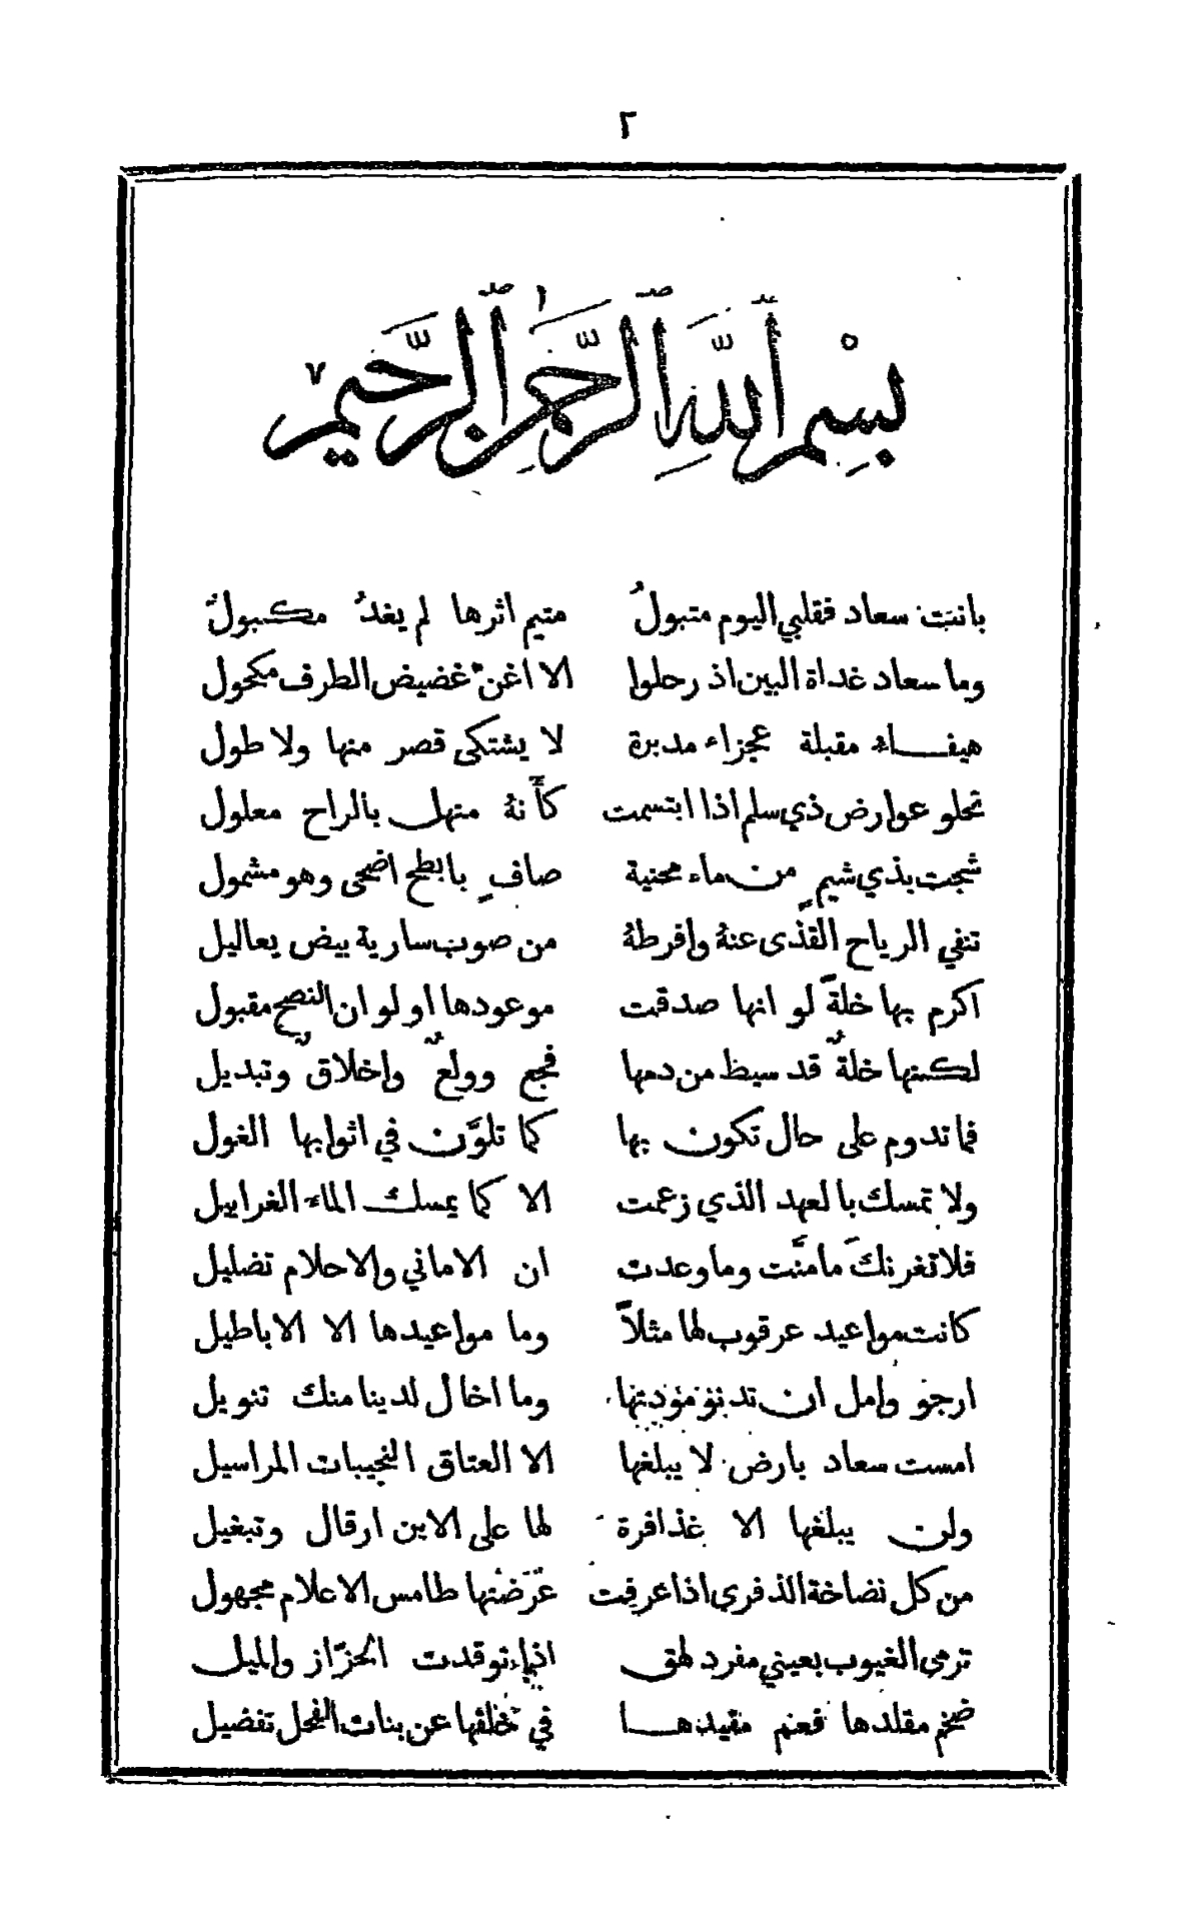 ٢
بِسْمِ ٱللَّهِ ٱلرَّحْمَٰنِ ٱلرَّحِيمِ
بانت سعاد فقلبي اليوم متبولُ متيم اثرها لم يغدُ مكبولُ
وما سعاد غداة البين اذ رحلوا الا اغن غضيض الطرف مكحول
هيفاء مقبلة عجزاء مدبرة لا يشتكى قصر منها ولا طول
تجلو عوارض ذي سلم اذا ابتسمت كأَنهُ منهل بالراح معلول
شجت بذي شيمٍ من ماء محنية صافٍ بابطح اضحى وهو مشمول
تنفي الرياح القذى عنهُ وافرطهُ من صوب سارية بيض يعاليل
اكرم بها خلةً لو انها صدقت موعودها او لو ان النصح مقبول
لكنها خلةٌ قد سيظ من دمها فجع وولعٌ واخلاقٌ وتبديل
فما تدوم على حال تكون بها كما تلوَّن في اثوابها الغول
ولا تمسك بالعهد الذي زعمت الا كما يمسك الماء الغرابيل
فلا تغرنكَ ما منَّت وما وعدت ان الاماني والاحلام تضليل
كانت مواعيد عرقوب لها مثلاً وما مواعيدها الا الاباطيل
ارجو وامل ان تدنو مودتها وما اخال لدينا منك تنويل
امست سعاد بارض لا يبلغها الا العتاق النجيبات المراسيل
ولن يبلغها الا غذافرة لها على الاين ارقال وتبغيل
من كل نضاخة الذفري اذا عرقت عُرْضَتُها طامس الاعلام مجهول
ترمى الغيوب بعيني مفرد لهق اذا توقدت الحزّاز والميل
ضخم مقلدها فعم مقيدها في خلقها عن بنات الفحل تفضيل